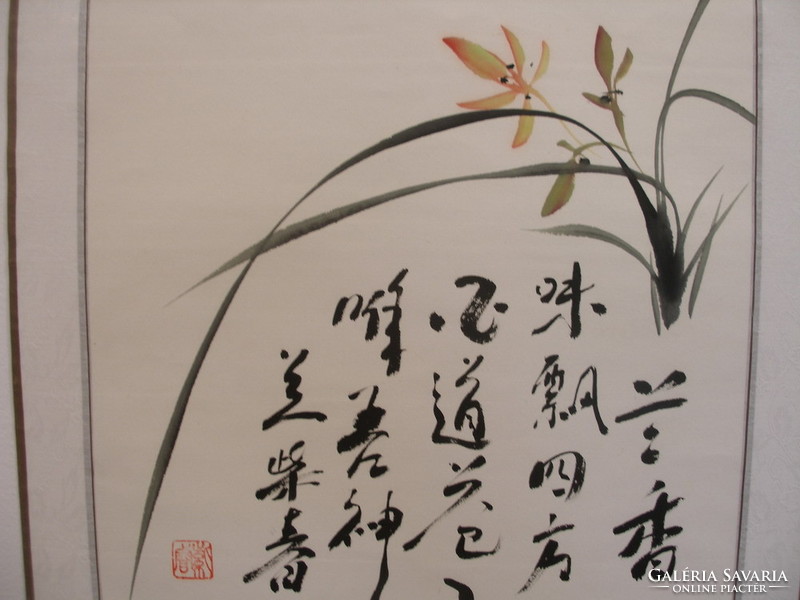 兰香
味飘四方
道花
唯吾神
柴春
GALÉRIA SAVARIA
ONLINE PIACTÉR